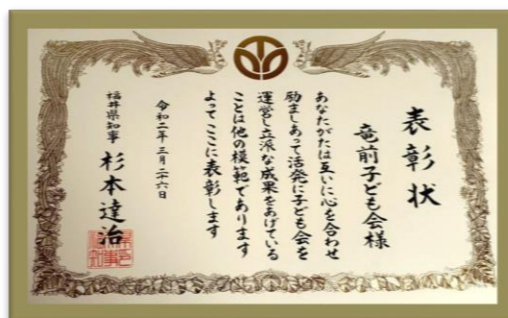 表彰状
竜前子ども会様
あなたがたは互いに心を合わせ
励ましあって活発に子ども会を
運営し立派な成果をあげている
ことは他の模範であります
よってここに表彰します
令和二年三月二十六日
福井県知事 杉本達治